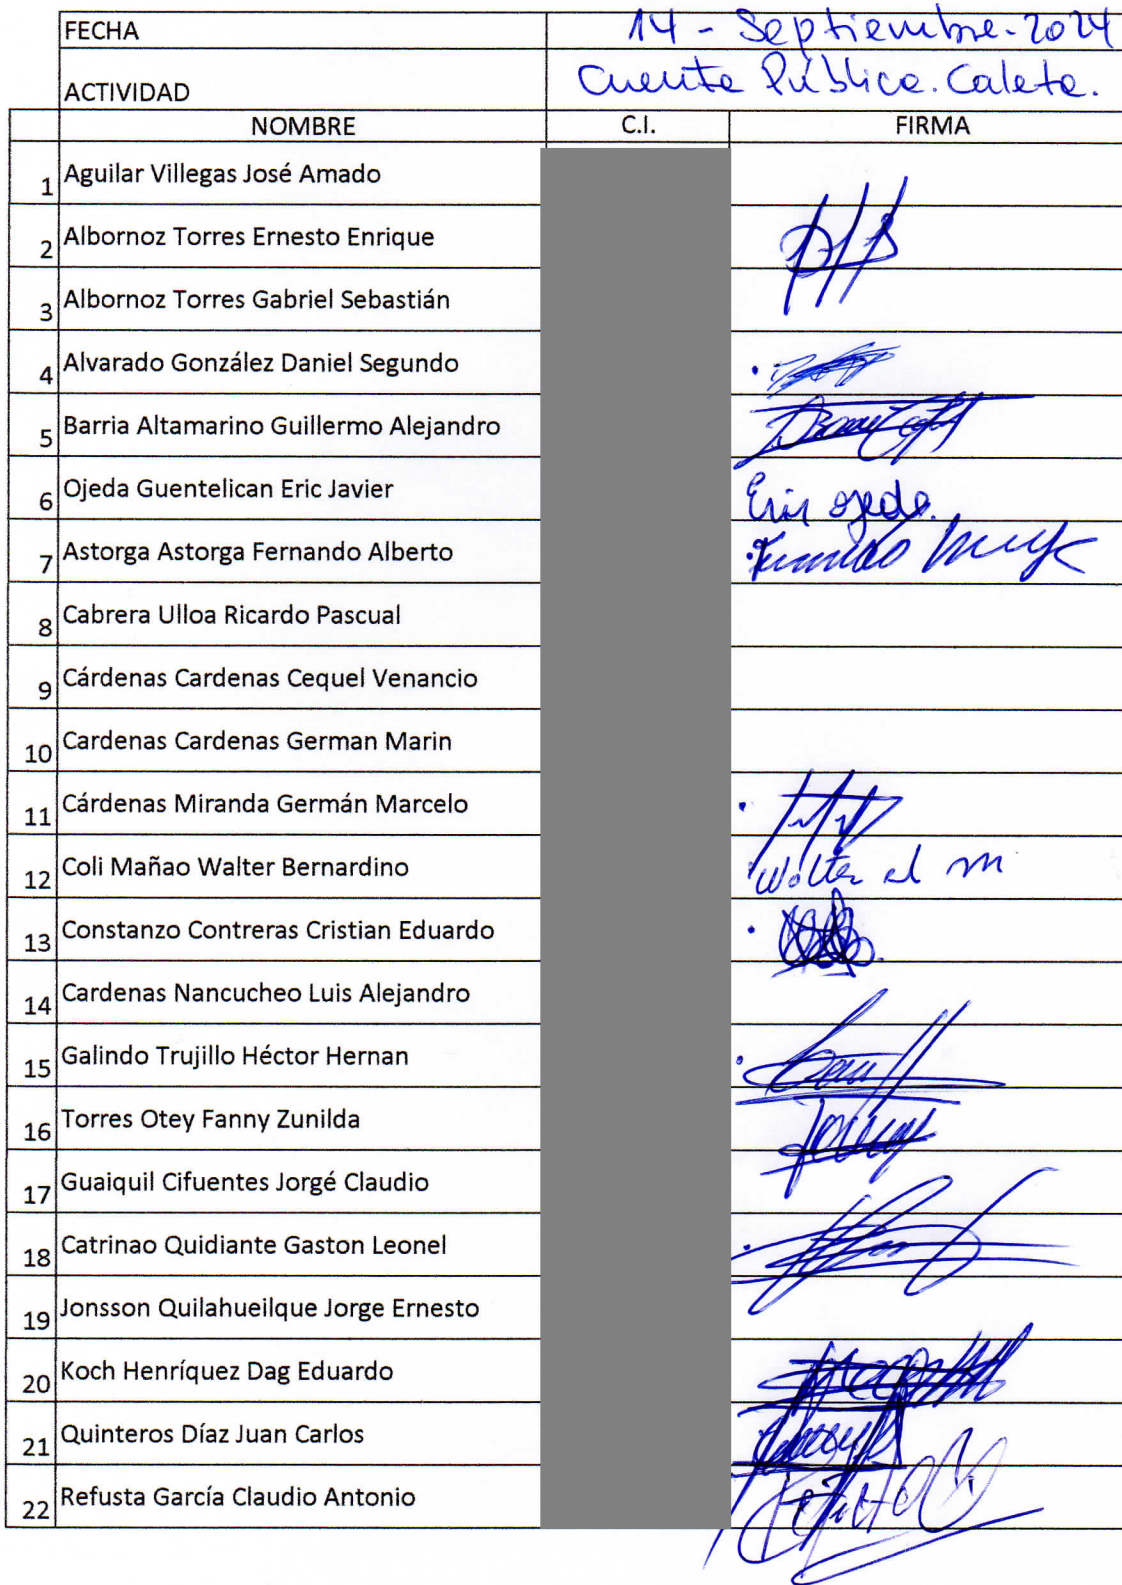 FECHA 14 - Septiembre - 2024
ACTIVIDAD Cuenta Pública. Caleta.
NOMBRE C.I. FIRMA
1 Aguilar Villegas José Amado
2 Albornoz Torres Ernesto Enrique
3 Albornoz Torres Gabriel Sebastián
4 Alvarado González Daniel Segundo
5 Barria Altamarino Guillermo Alejandro
6 Ojeda Guentelican Eric Javier Eric Ojeda.
7 Astorga Astorga Fernando Alberto
8 Cabrera Ulloa Ricardo Pascual
9 Cárdenas Cardenas Cequel Venancio
10 Cardenas Cardenas German Marin
11 Cárdenas Miranda Germán Marcelo
12 Coli Mañao Walter Bernardino Walter
13 Constanzo Contreras Cristian Eduardo
14 Cardenas Nancucheo Luis Alejandro
15 Galindo Trujillo Héctor Hernan
16 Torres Otey Fanny Zunilda
17 Guaiquil Cifuentes Jorgé Claudio
18 Catrinao Quidiante Gaston Leonel
19 Jonsson Quilahueilque Jorge Ernesto
20 Koch Henríquez Dag Eduardo
21 Quinteros Díaz Juan Carlos
22 Refusta García Claudio Antonio